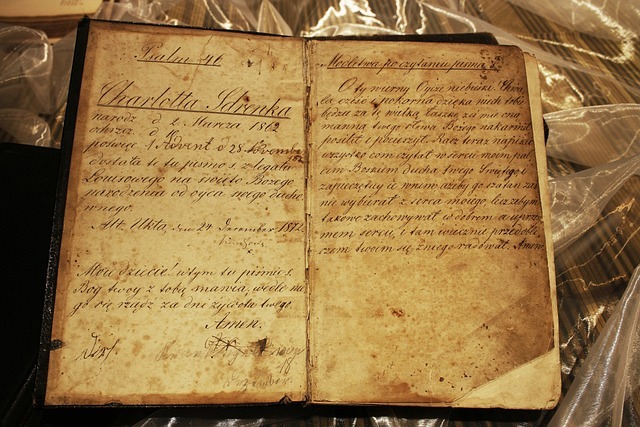 Psalm 46
Charlotta Sdrenka
narodz. d. 2. Marca 1862
ochrzc. d.
poświęc. 1. Advent d 28 November
dostała te tu pismo s. z legatu
Louisowego na święto Bożego
narodzenia od oyca swego ducho
wnego.
Alt. Ukta, den 24 December 187
Moie dziecie! wtym tu piśmie s.
Bog twoy z tobą mawia, wedle nie
go się rządź za dni żywota twego.
Amen.
Modlitwa po czytaniu pisma ś.
O ty wierny Oycze niebieski! Chwa
ła, cześć i pokorna dzięka niech tobie
będzie za tę wielką łaskę, żeś mie oną
manną twego słowa Bożego nakarmił
posilił i pocieszył. Racz teraz napisać
wszystko com czytał w sercu moiem pal
cem Bozkim Ducha twego Świętego i
zapieczętuy ie wniem ażeby go szatan zas
nie wybierał z serca moiego, lecz abym
takowe zachowywał w dobrem a uprzy
mem sercu, i tam wiecznie przed obli
czem twoiem się z niego radował. Amen.